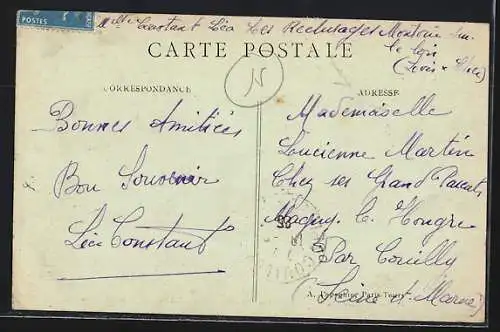 POSTES
Mlle Constant Léa Les Reclusages Montoire sur
le Loir
(Loir & Cher)
CARTE POSTALE
N
CORRESPONDANCE
ADRESSE
Bonnes Amitiés
Bon Souvenir
Léa Constant
Mademoiselle
Lucienne Martin
Chez ses Grand Parents
Magny le Hongre
Par Couilly
(Seine et Marne)
Paris-Tours